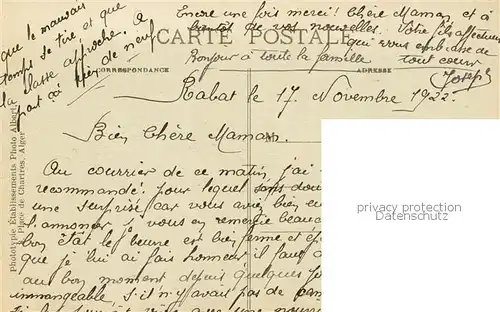 que le mauvais
temps se tire, et que
la classe approche. à
part ça rien de neuf
Encre une fois merci! Chère Maman et à
bientôt de vos nouvelles. Votre fils affectueux
qui vous embrasse de
Bonjour à toute la famille
tout cœur
Joseph
CARTE POSTALE
CORRESPONDANCE
ADRESSE
Rabat le 17 Novembre 1922.
Bien Chère Maman.
Au courrier de ce matin, j'ai
recommandé. pour lequel sans dou
une surprise car vous aviez bien
l'annoncer, je vous en remercie beauc
bon état le beurre est bien ferme et
que je lui ai fais honneur il faut
au bon moment depuis quelques jo
immangeable, s'il n'y avais pas de
Phototype Etablissements Photo Albert
Place de Chartres, Alger
privates Datenschutz
Datenschutz